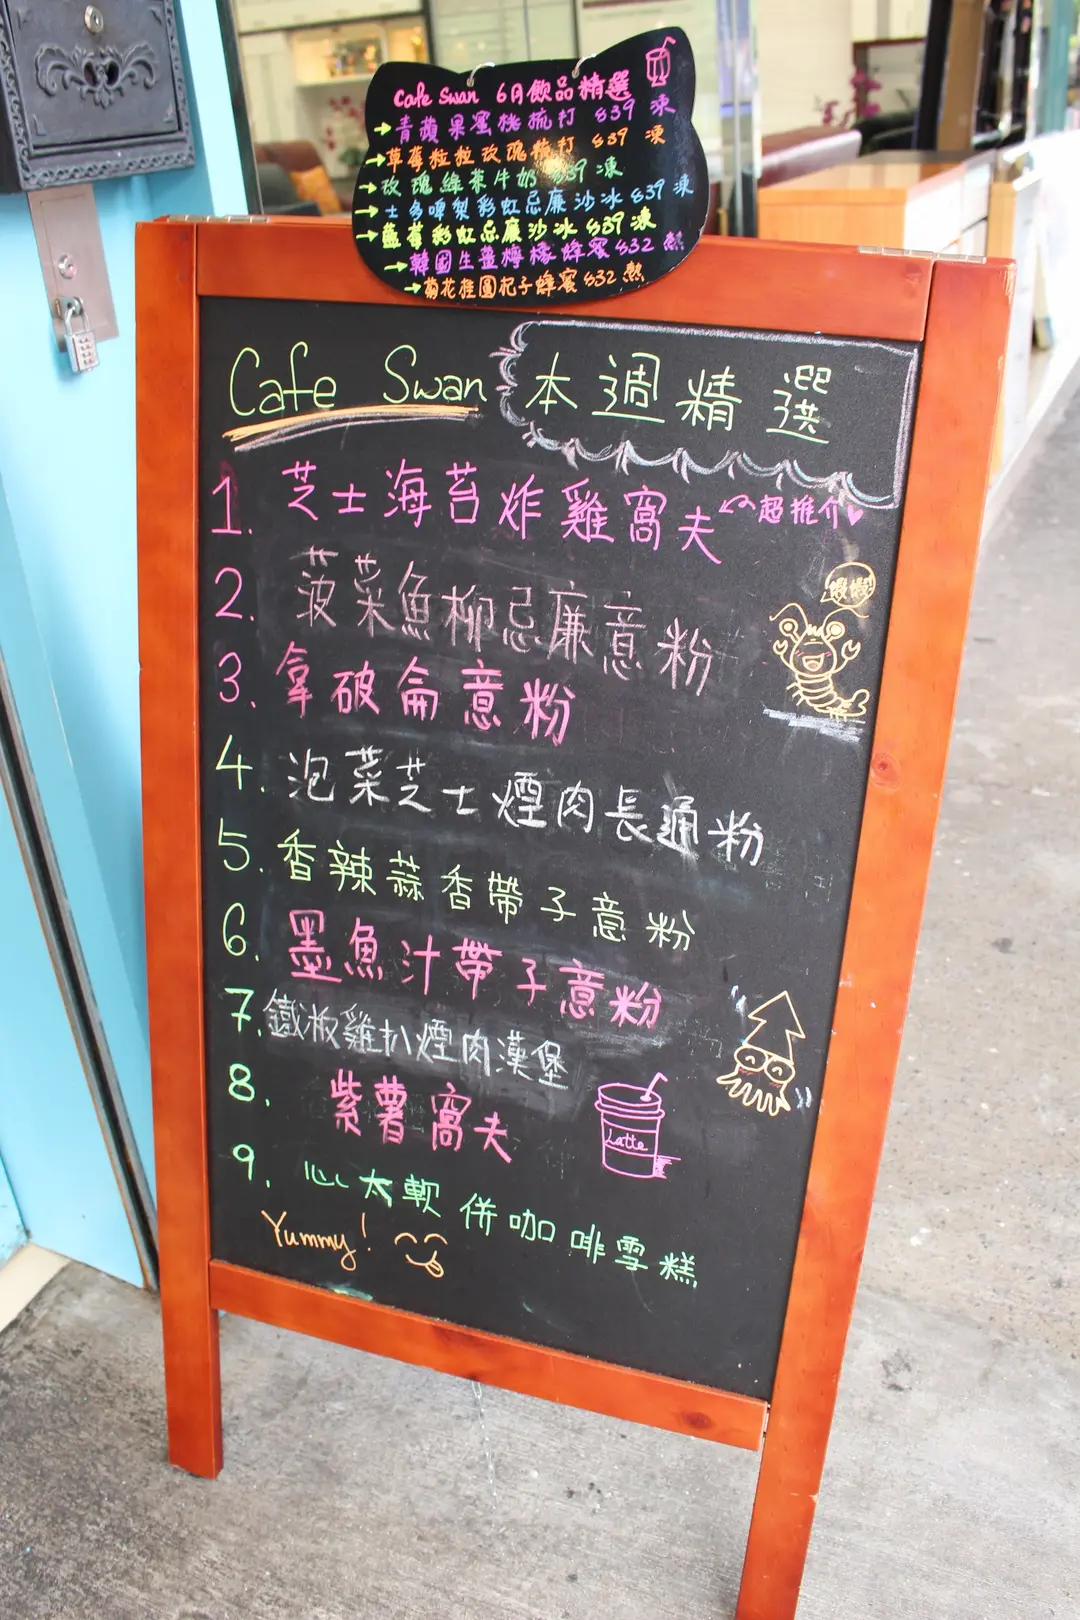 Cafe Swan 6月飲品精選
→青蘋果蜜桃梳打 $39 凍
→草莓粒粒玫瑰梳打 $39 凍
→玫瑰綠茶牛奶 $39 凍
→士多啤梨彩虹忌廉沙冰 $39 凍
→藍莓彩虹忌廉沙冰 $39 凍
→韓國生薑檸檬蜂蜜 $32 熱
→菊花桂圓杞子蜂蜜 $32 熱
Cafe Swan 本週精選
1. 芝士海苔炸雞窩夫 超推介♥
2. 菠菜魚柳忌廉意粉
蝦蝦
3. 拿破侖意粉
4. 泡菜芝士煙肉長通粉
5. 香辣蒜香帶子意粉
6. 墨魚汁帶子意粉
7. 鐵板雞扒煙肉漢堡
8. 紫薯窩夫
Latte
9. 心太軟併咖啡雪糕
Yummy!